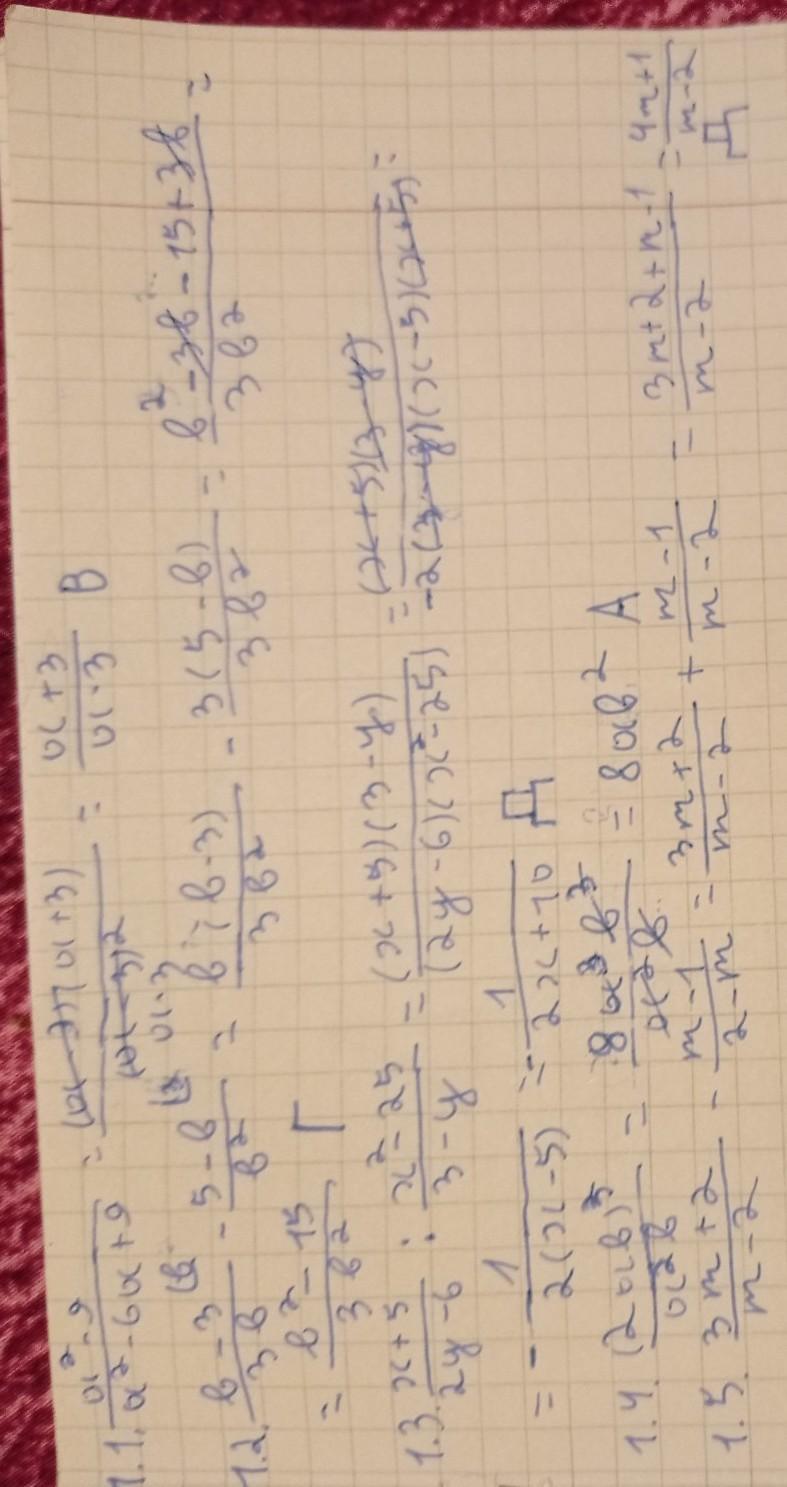 1.1. (a²-9)/(a²-6a+9) = ((a-3)(a+3))/(a-3)² = (a+3)/(a-3) В
a-3
1.2. (в-3)/(3в) - (5-в)/(в²) = (в(в-3))/(3в²) - (3(5-в))/(3в²) = (в²-3в-15+3в)/(3в²) =
= (в²-15)/(3в²) Г
1.3. (x+5)/(2y-6) : (x²-25)/(3-y) = ((x+5)(3-y))/((2y-6)(x²-25)) = ((x+5)(3-y))/(-2(3-y)(x-5)(x+5)) =
= - 1/(2(x-5)) = 1/(2x+10) Д
1.4. (2ав)³/(а²в) = (8а³в³)/(а²в) = 8ав² А
1.5. (3m+2)/(m-2) - (m-1)/(2-m) = (3m+2)/(m-2) + (m-1)/(m-2) = (3m+2+m-1)/(m-2) = (4m+1)/(m-2) Д